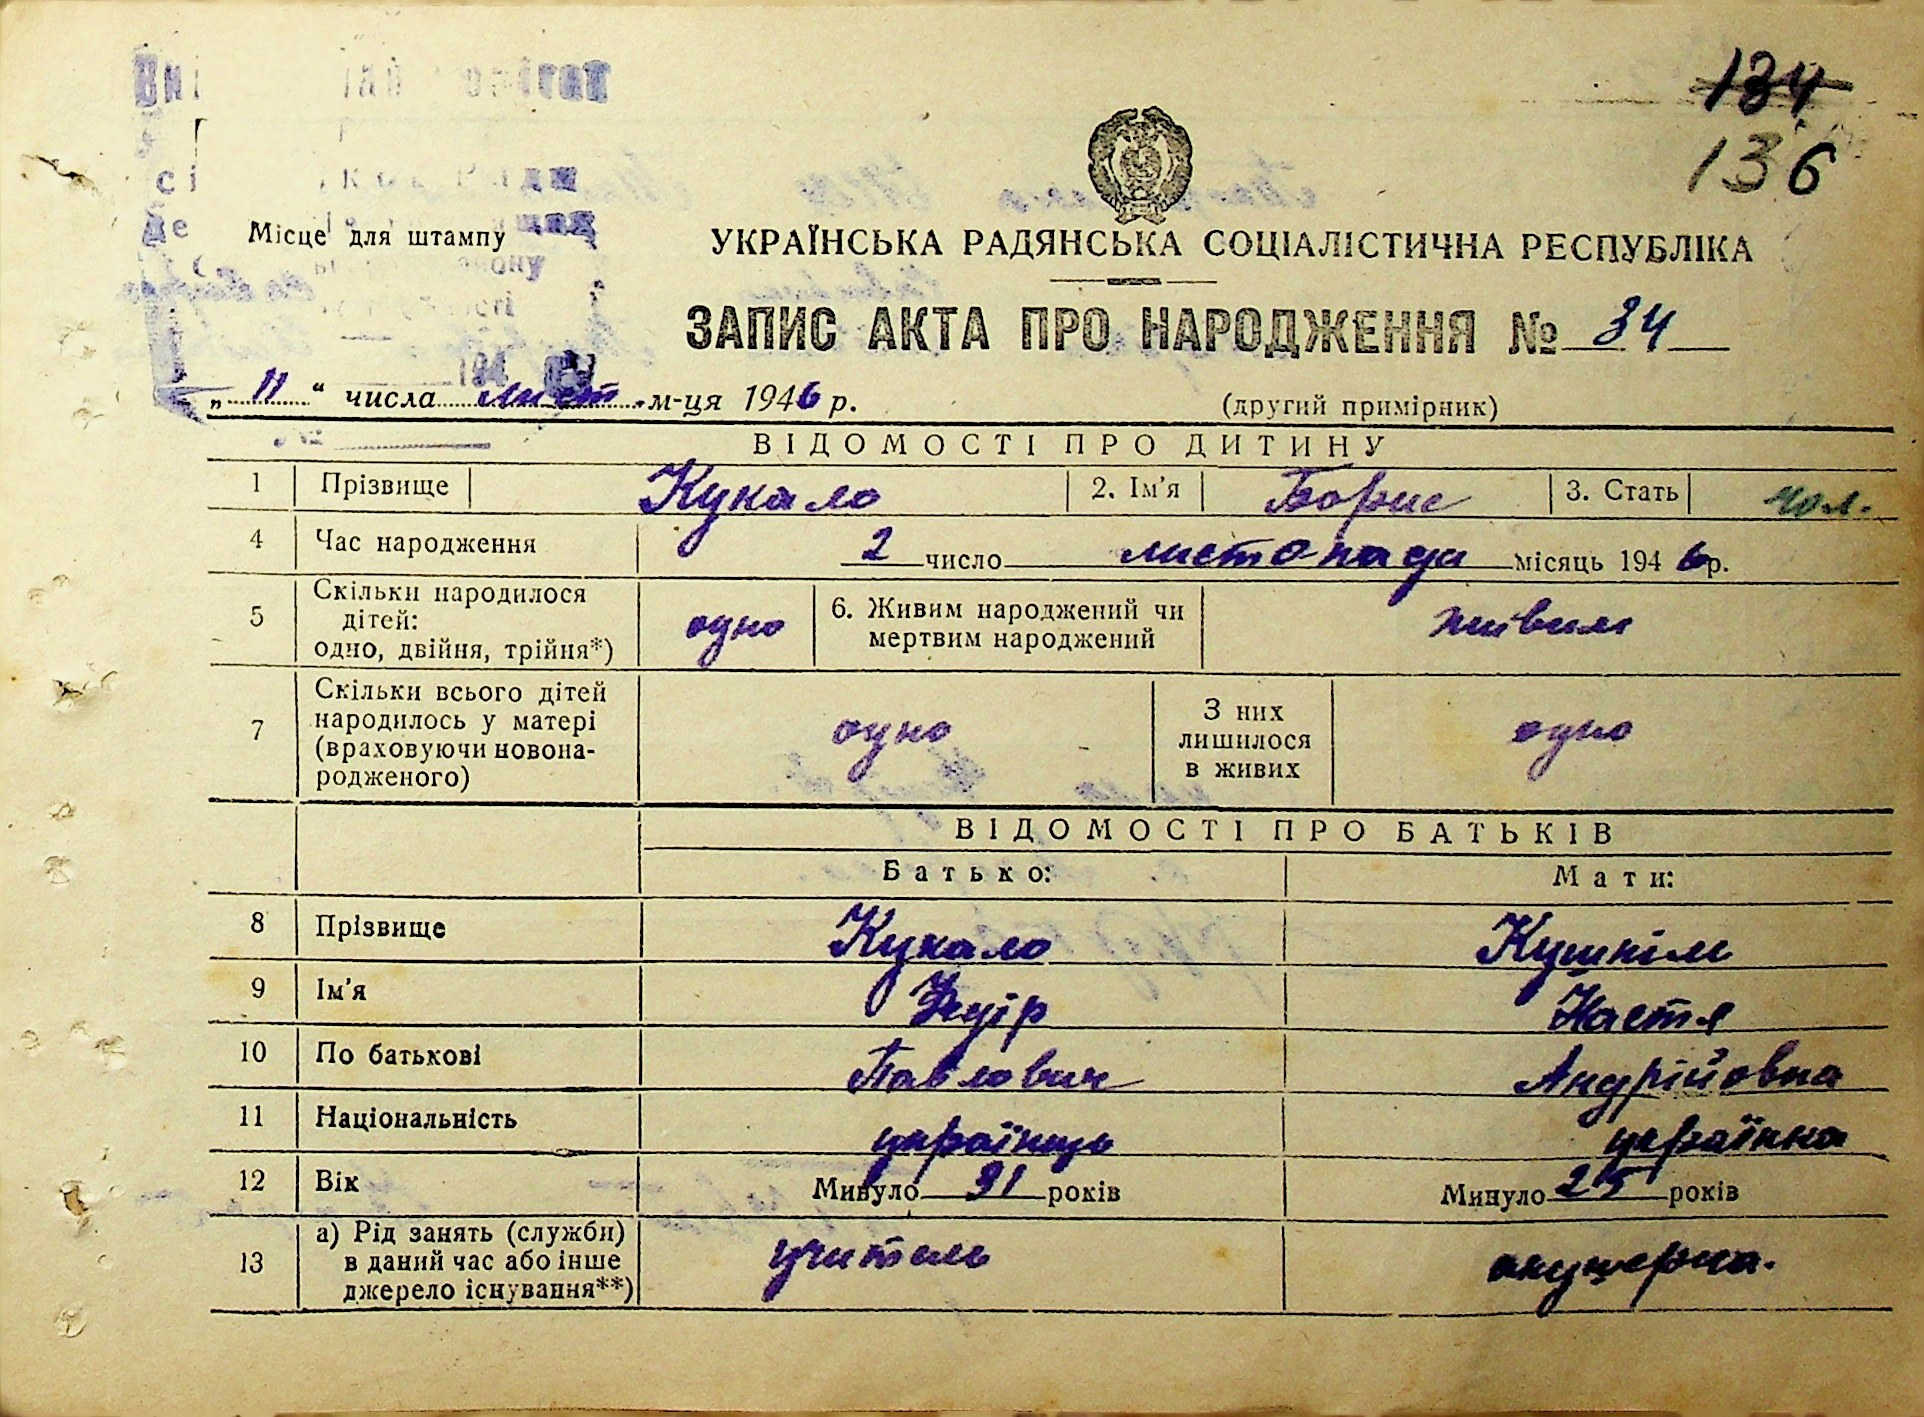 134
136
Місце для штампу
УКРАЇНСЬКА РАДЯНСЬКА СОЦІАЛІСТИЧНА РЕСПУБЛІКА
ЗАПИС АКТА ПРО НАРОДЖЕННЯ № 34
„ 11 “ числа лист. м-ця 1946 р. (другий примірник)
ВІДОМОСТІ ПРО ДИТИНУ
1 Прізвище Кукало 2. Ім'я Борис 3. Стать чол.
4 Час народження 2 число листопада місяць 1946 р.
5 Скільки народилося дітей: одно, двійня, трійня*) одно 6. Живим народжений чи мертвим народжений живим
7 Скільки всього дітей народилось у матері (враховуючи новонародженого) одно З них лишилося в живих одно
ВІДОМОСТІ ПРО БАТЬКІВ
Батько: Мати:
8 Прізвище Кукало
9 Ім'я Настя
10 По батькові Павлович Андрійовна
11 Національність українець українка
12 Вік Минуло 31 років Минуло 25 років
13 а) Рід занять (служби) в даний час або інше джерело існування**) учитель акушерка.